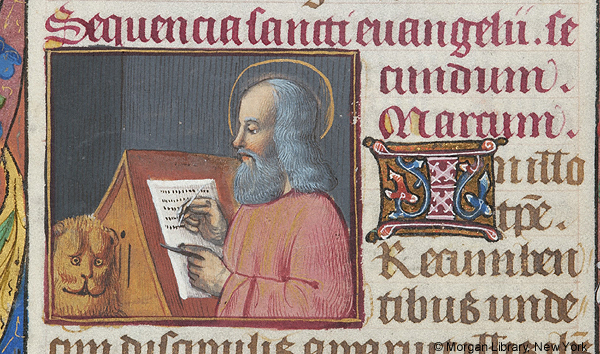 Sequencia sancti euangelii. se
cundum.
Marcum.
In illo
tp̄e.
Recumben
tibus unde
cim discipulis
© Morgan Library, New York